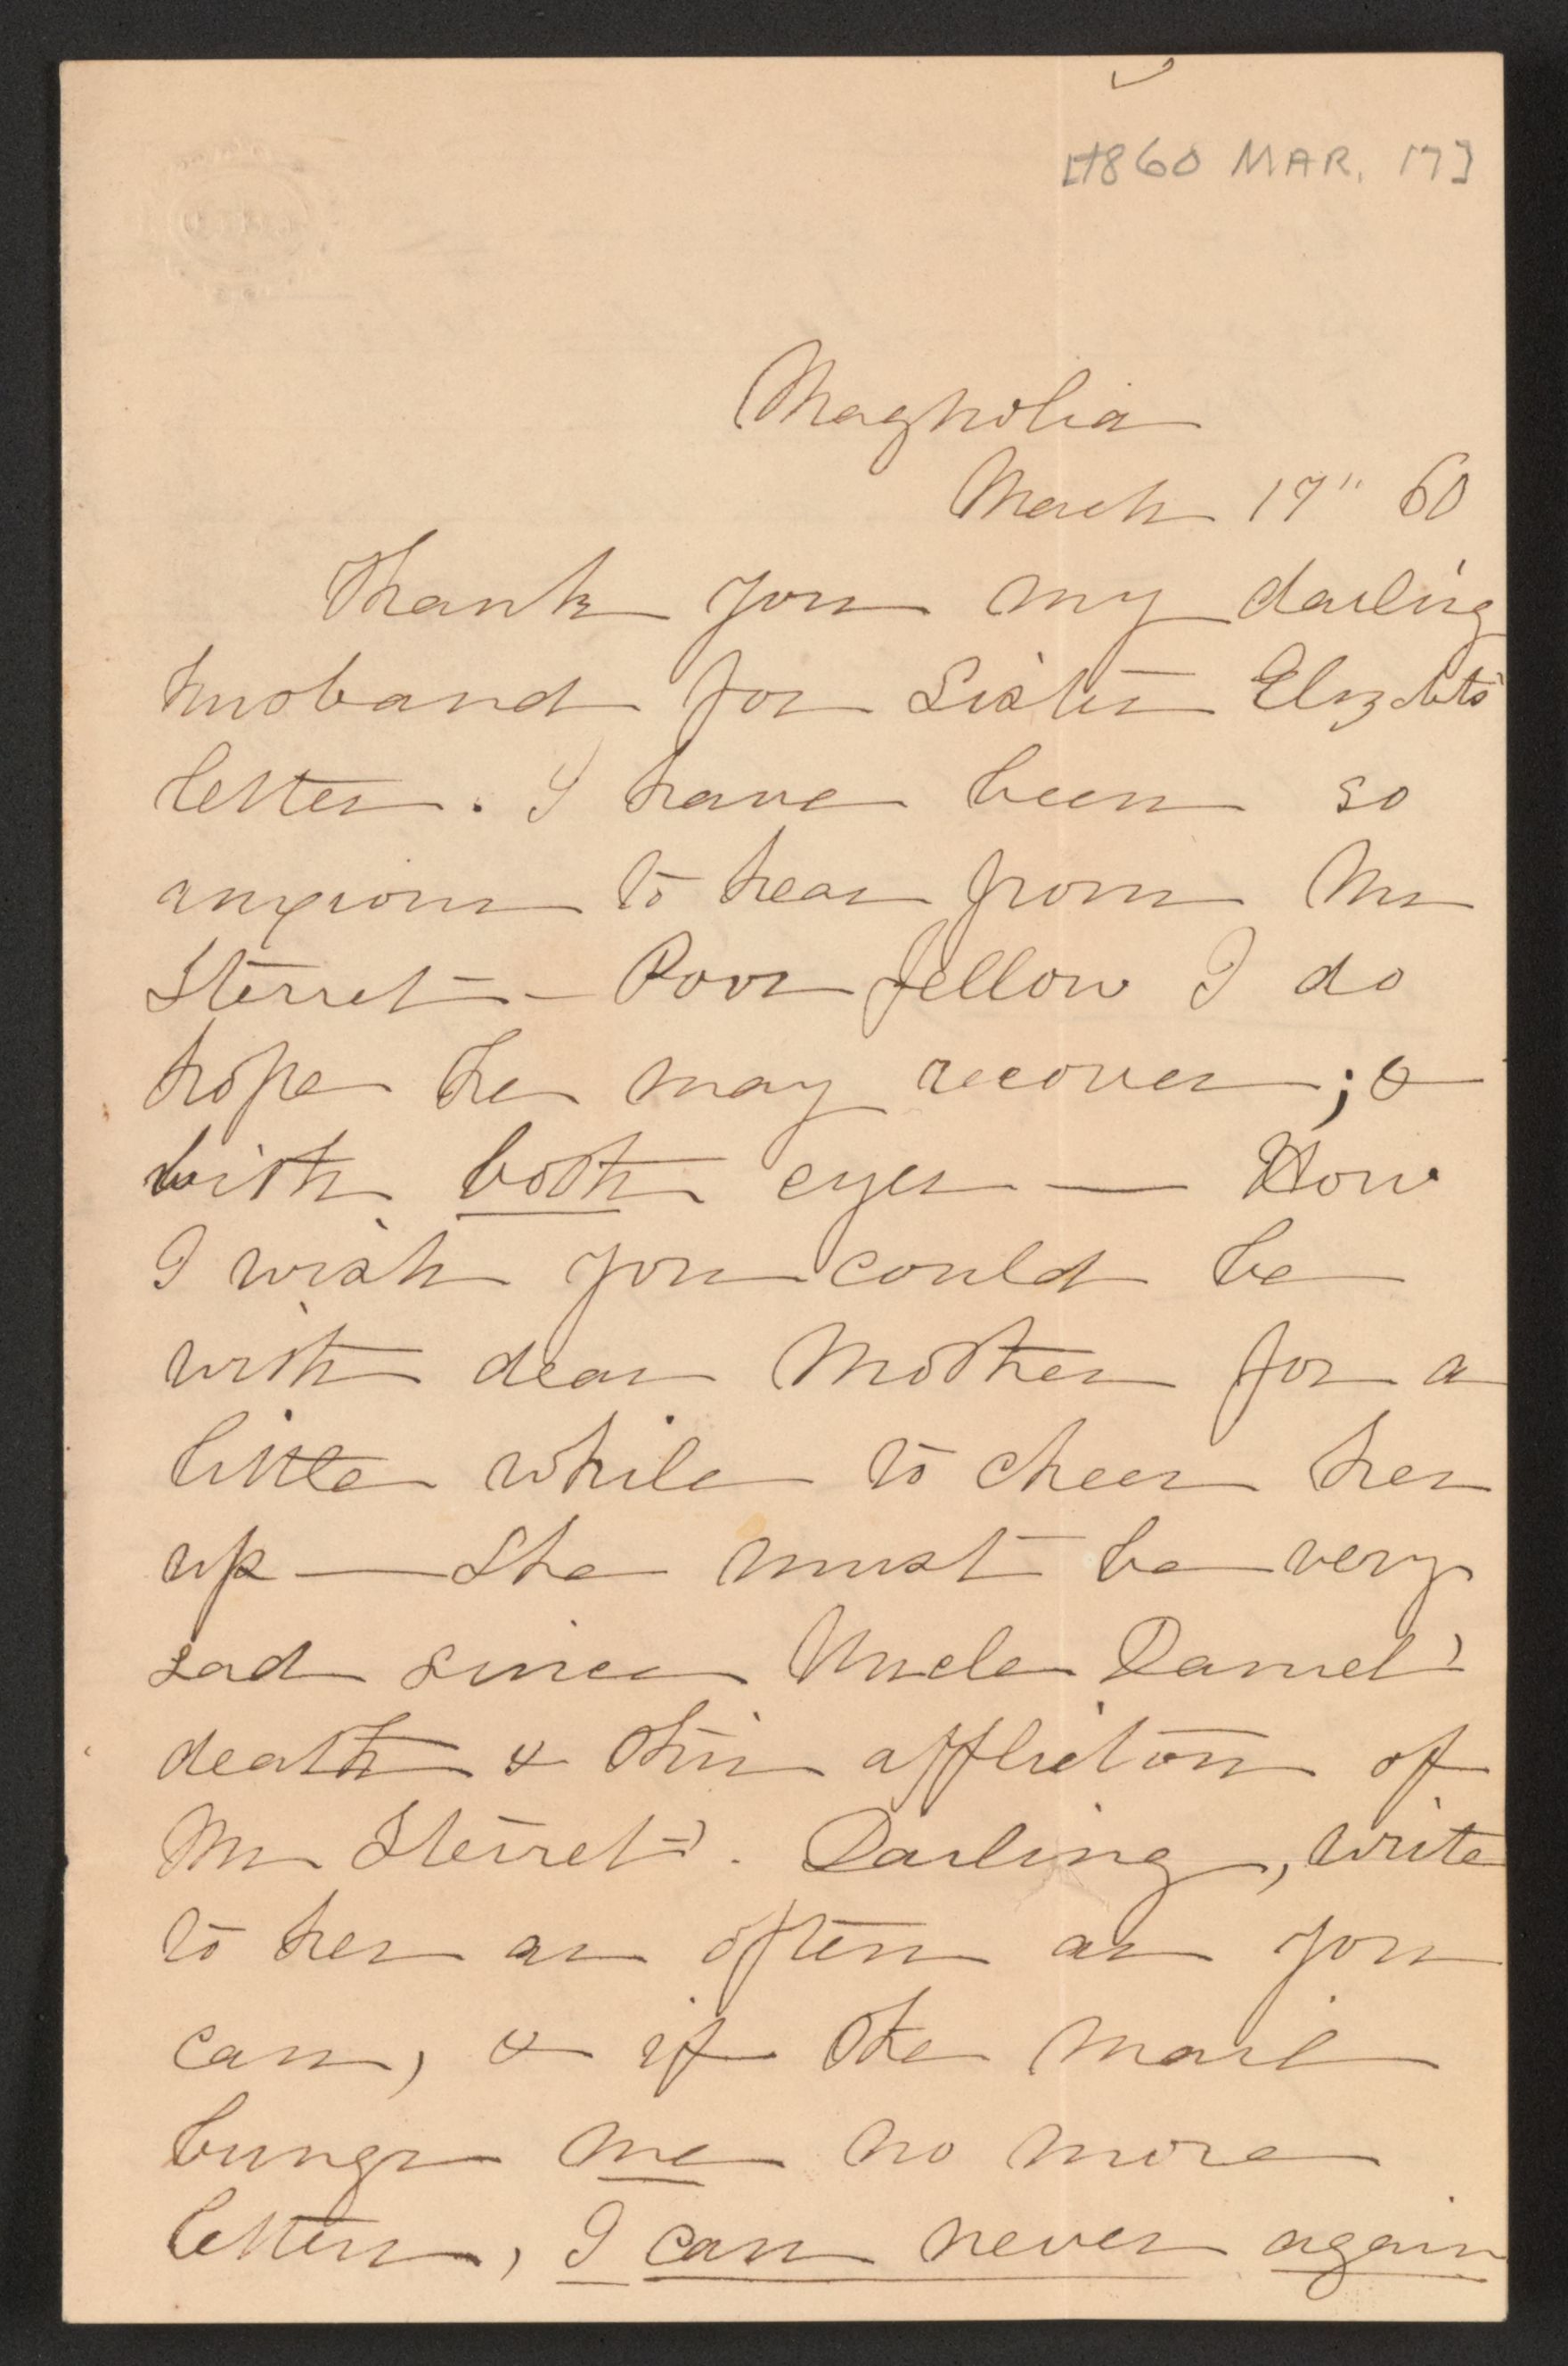 [1860 MAR. 17]
Magnolia
March 17" 60
Thank you my darling
husband for Sister Elizabths
letter. I have been so
anxious to hear from Mr
Sterret - Poor fellow I do
hope he may recover; &
with both eyes — How
I wish you could be
with dear Mother for a
little while to cheer her
up — She must be very
sad since Uncle Daniel's
death & this affliction of
Mr Sterret's. Darling, write
to her as often as you
can, & if the mail
brings me no more
letters, I can never again